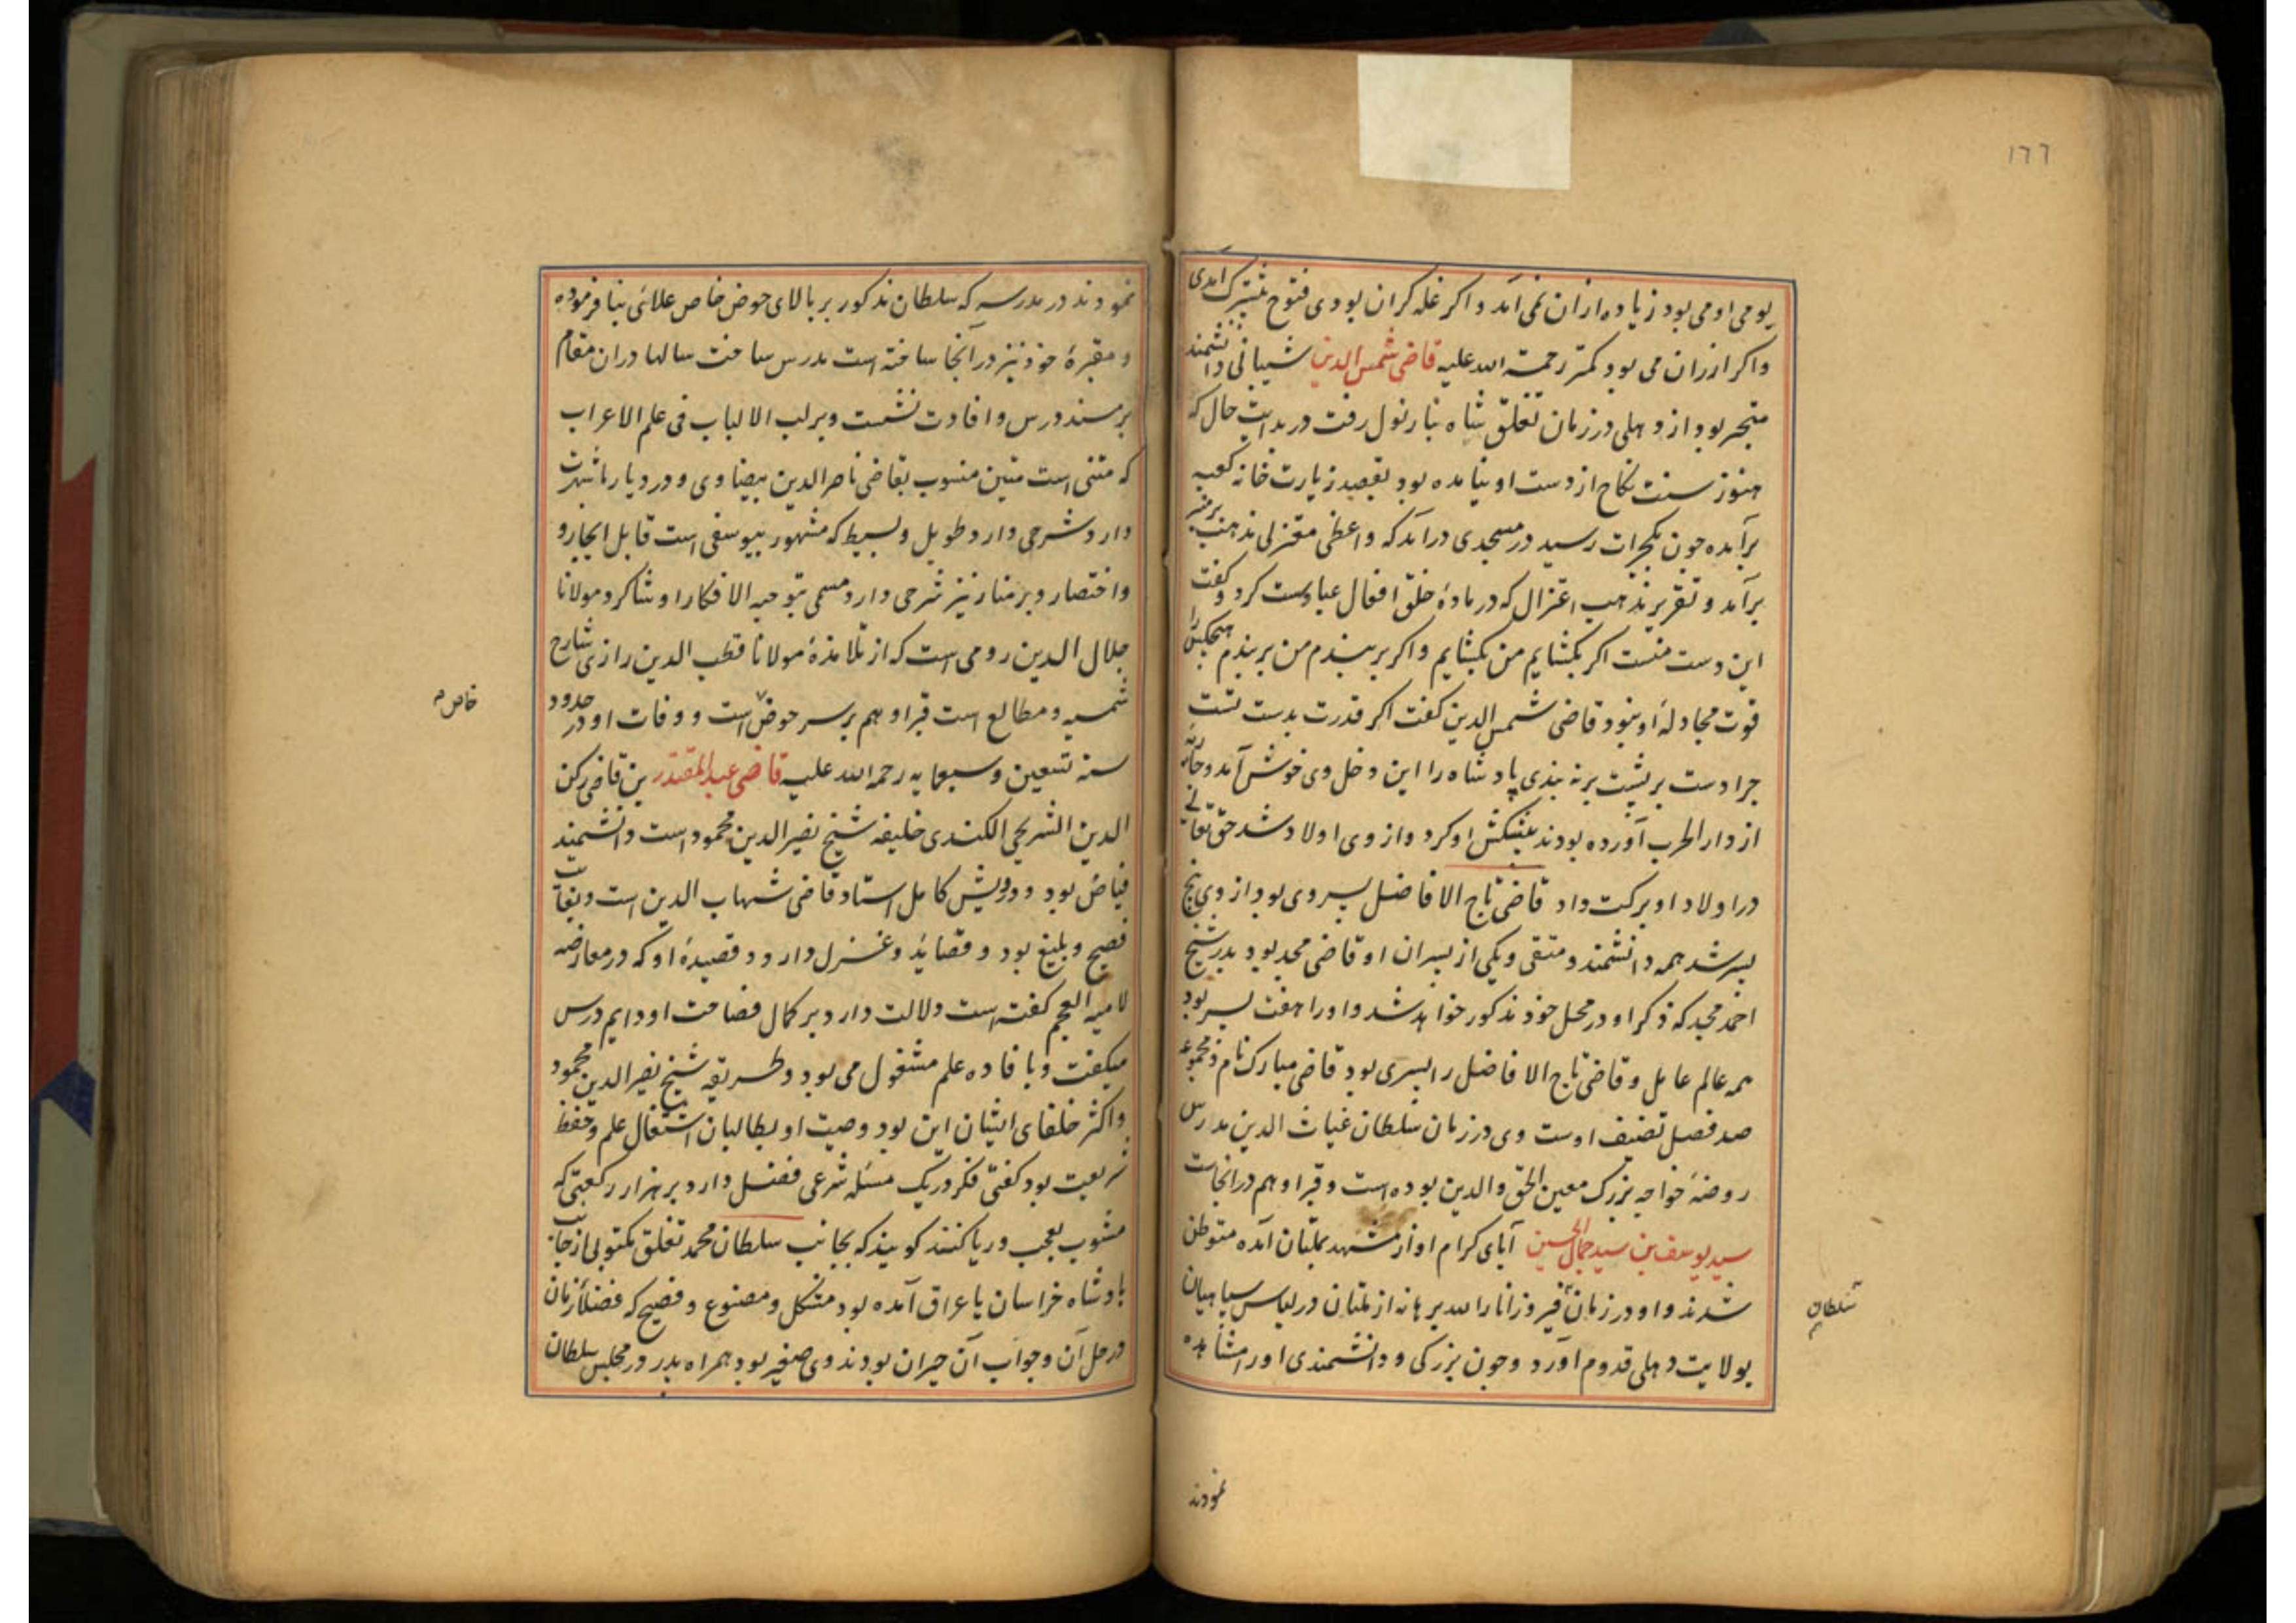 ١٦٦
یومی او می بود زیاده ازان نمی آمد و اکر غله کران بودی فتوح بیشترک آمدی
واکر ارزان می بود کمتر رحمة الله علیه قاضی شمس الدین شیبانی دانشمند
متبحر بود از دهلی در زمان تغلق شاه بنارنول رفت در بدایت حال که
هنوز سنت نکاح از دست او نیامده بود بقصد زیارت خانه کعبه
برآمده چون بکجرات رسید در مسجدی درآمد که واعظی معتزلی مذهب بر منبر
برآمد و تقریر مذهب اعتزال که در مادهٔ خلق افعال عباد است کرد و کفت
این دست منست اکر بکشایم من بکشایم و اکر بربندم من بربندم هیچکس را
قوت مجادلهٔ او نبود قاضی شمس الدین کفت اکر قدرت بدست تست
چرا دست بر پشت برنه بندی پادشاه را این دخل وی خوش آمد و جاریه
از دار الحرب آورده بودند پیشکش او کرد و از وی اولاد شد حق تعالی
در اولاد او برکت داد قاضی تاج الافاضل پسر وی بود از وی پنج
پسر شد همه دانشمند و متقی و یکی از پسران او قاضی مجد بود پدر شیخ
احمد مجد که ذکر او در محل خود مذکور خواهد شد و او را هفت پسر بود
همه عالم عامل و قاضی تاج الافاضل را پسری بود قاضی مبارک نام و مجموعه
صد فصل تصنیف اوست وی در زمان سلطان غیاث الدین مدرس
روضهٔ خواجه بزرک معین الحق والدین بوده است و قبر او هم در انجاست
سید یوسف بن سید جمال الحسینی آبای کرام او از مشهد بملتان آمده متوطن
شدند و او در زمان فیروز انار الله برهانه از ملتان در لباس سپاهیان
سلطان
بولایت دهلی قدوم آورد و چون بزرکی و دانشمندی او را مشاهده
نمودند
نمودند در مدرسه که سلطان مذکور بر بالای حوض خاص علائی بنا فرموده
و مقبرهٔ خود نیز در آنجا ساخته است مدرس ساخت سالها دران مقام
بر مسند درس و افادت نشست و بر لب الالباب فی علم الاعراب
که متنی است متین منسوب بقاضی ناصر الدین بیضاوی و در دیار ما شهرت
دارد شرحی دارد طویل و بسیط که مشهور بیوسفی است قابل ایجاز و
واختصار و بر منار نیز شرحی دارد مسمی بتوجیه الافکار او شاکرد مولانا
جلال الدین رومی است که از تلامذهٔ مولانا قطب الدین رازی شارح
شمسیه و مطالع است قبر او هم بر سر حوض است و وفات او در حدود
خاص
سنه تسعین و سبعمایه رحمه الله علیه قاضی عبد المقتدر بن قاضی رکن
الدین الشریحی الکندی خلیفه شیخ نصیر الدین محمود است دانشمند
فیاض بود و درویش کامل استاد قاضی شهاب الدین است و بغایت
فصیح و بلیغ بود و قصاید و غزل دارد و قصیدهٔ او که در معارضه
لامیه العجم کفته است دلالت دارد بر کمال فصاحت او دایم درس
میکفت و بافاده علم مشغول می بود و طریقه شیخ نصیر الدین محمود
و اکثر خلفای ایشان این بود وصیت او بطالبان اشتغال علم و حفظ
شریعت بود کفتی فکر در یک مسئله شرعی فضل دارد بر هزار رکعتی که
مشوب بعجب و ریا کنند کویند که بجانب سلطان محمد تغلق مکتوبی از جانب
بادشاه خراسان یا عراق آمده بود مشکل و مصنوع و فصیح که فضلاء زمان
در حل آن و جواب آن حیران بودند وی صغیر بود همراه پدر در مجلس سلطان